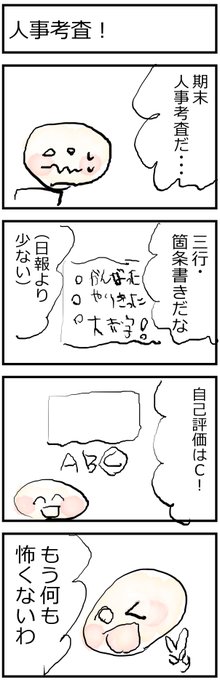 人事考査！
期末
人事考査だ・・・
三行・
箇条書きだな
○がんばった
○やりきった
○大赤字！
(日報より
少ない)
自己評価はC！
ABC
もう何も
怖くないわ